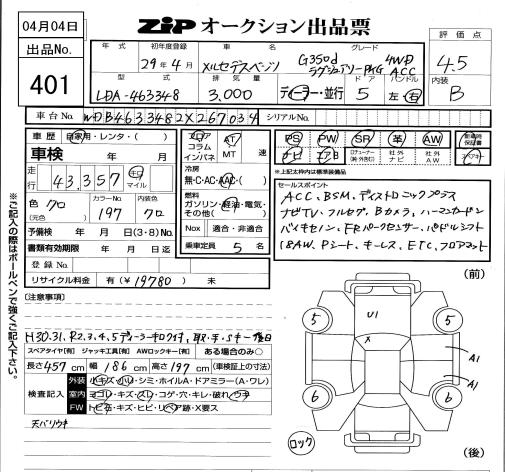 04月04日
ZiP オークション出品票
出品No.
401
年式
初年度登録
車名
グレード
評価点
29年4月
メルセデスベンツ
G350d 4WD
ラグジュアリーPKG ACC
4.5
型式
排気量
ドア
ハンドル
LDA-463348
3,000
ディーラー・並行
5
左・右
内装
B
車台No.
WDB4633482X267034
シリアルNo.
車歴
自家用・レンタ・( )
フロア
コラム
インパネ
AT
MT
速
PS
PW
SR
革
AW
新車時保証書
車検
年 月
ナビ
エアB
社外ナビ
社外AW
スペアキー
走行
43,357
キロ
マイル
冷房
無・C・AC・AAC・( )
※上記太枠内は標準装備品
色
クロ
(元色)
カラーNo.
197
内装色
クロ
燃料
ガソリン・軽油・電気・
その他( )
セールスポイント
ACC、BSM、ディストロニックプラス
ナビTV、フルセグ、Bカメラ、ハーマンカードン
バイキセノン、FRパークセンサー、パドルシフト
18AW、Pシート、キーレス、ETC、フロアマット
予備検
年 月 日(3・8)
Nox
適合・非適合
書類有効期限
年 月 日迄
乗車定員
5
名
登録No.
リサイクル料金
有(¥19780)無
※ご記入の際はボールペンで強くご記入下さい。
(注意事項)
H30.31、R2、3、4、5ディーラー キロク簿、取・手・Sキー 後日
スペアタイヤ[有] ジャッキ工具[有] AWロックキー[有] ある場合のみ○
長さ 457 cm 幅 186 cm 高さ 197 cm (車検証上の寸法)
検査記入
外装
小キズ・凹・シミ・ホイルA・ドアミラー(A・ワレ)
室内
ヨゴレ・キズ・スレ・コゲ・穴・キレ・破れ・ウキ
FW
トビ石・キズ・ヒビ・リペア跡・X要ス
天バリウキ
(前)
U1
X
5
5
A1
A1
6
6
ロック
(後)